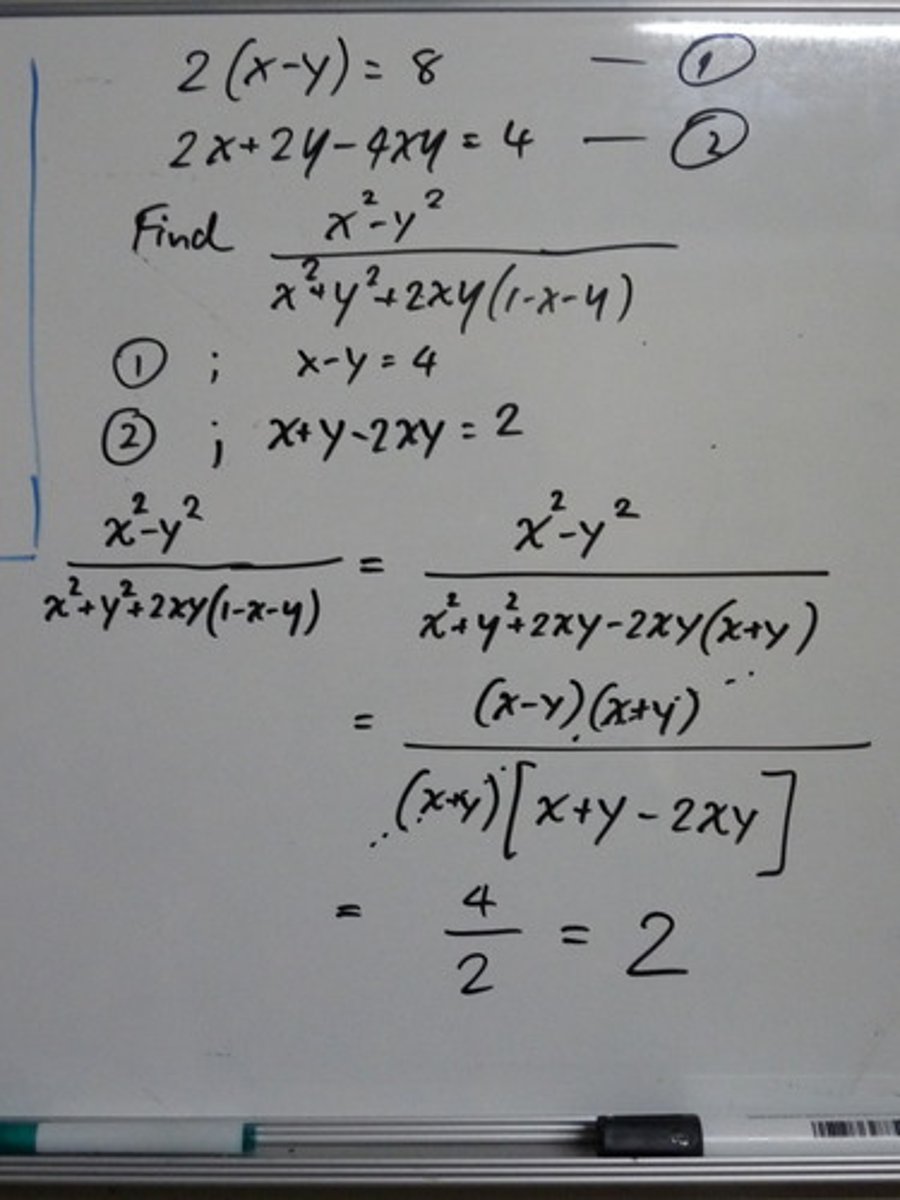 2(x-y) = 8 — ①
2x+2y-4xy = 4 — ②
Find (x²-y²)/(x²+y²+2xy(1-x-y))
① ; x-y = 4
② ; x+y-2xy = 2
(x²-y²)/(x²+y²+2xy(1-x-y)) = (x²-y²)/(x²+y²+2xy-2xy(x+y))
= (x-y)(x+y)/((x+y)[x+y-2xy])
= 4/2 = 2